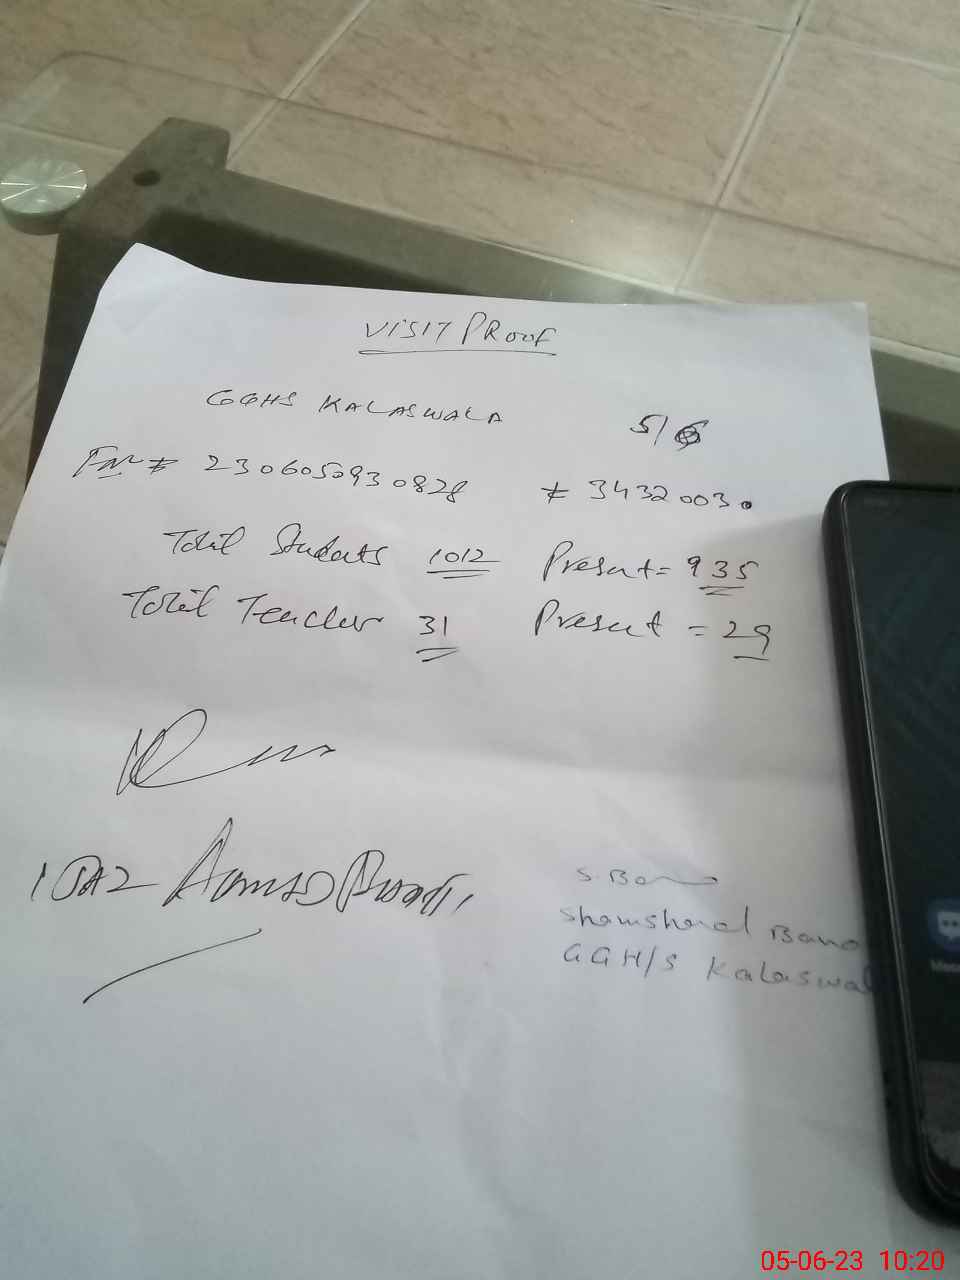 VISIT PROOF
GGHS KALASWALA 5/6
# 2306050930828 # 34320030
Total Students 1012 Present = 935
Total Teacher 31 Present = 29
S. Bano
Shamshad Bano
GGH/S Kalaswal
05-06-23 10:20